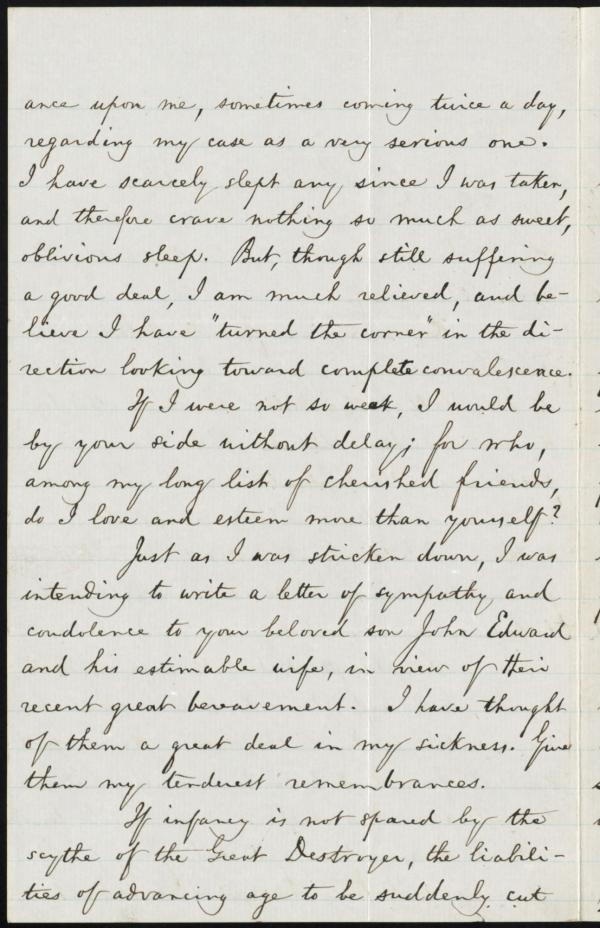 ance upon me, sometimes coming twice a day,
regarding my case as a very serious one.
I have scarcely slept any since I was taken,
and therefore crave nothing so much as sweet,
oblivious sleep. But, though still suffering
a good deal, I am much relieved, and be-
lieve I have "turned the corner" in the di-
rection looking toward complete convalescence.
If I were not so weak, I would be
by your side without delay; for who,
among my long list of cherished friends,
do I love and esteem more than yourself?
Just as I was stricken down, I was
intending to write a letter of sympathy and
condolence to your beloved son John Edward
and his estimable wife, in view of their
recent great bereavement. I have thought
of them a great deal in my sickness. Give
them my tenderest remembrances.
If infancy is not spared by the
scythe of the Great Destroyer, the liabili-
ties of advancing age to be suddenly cut